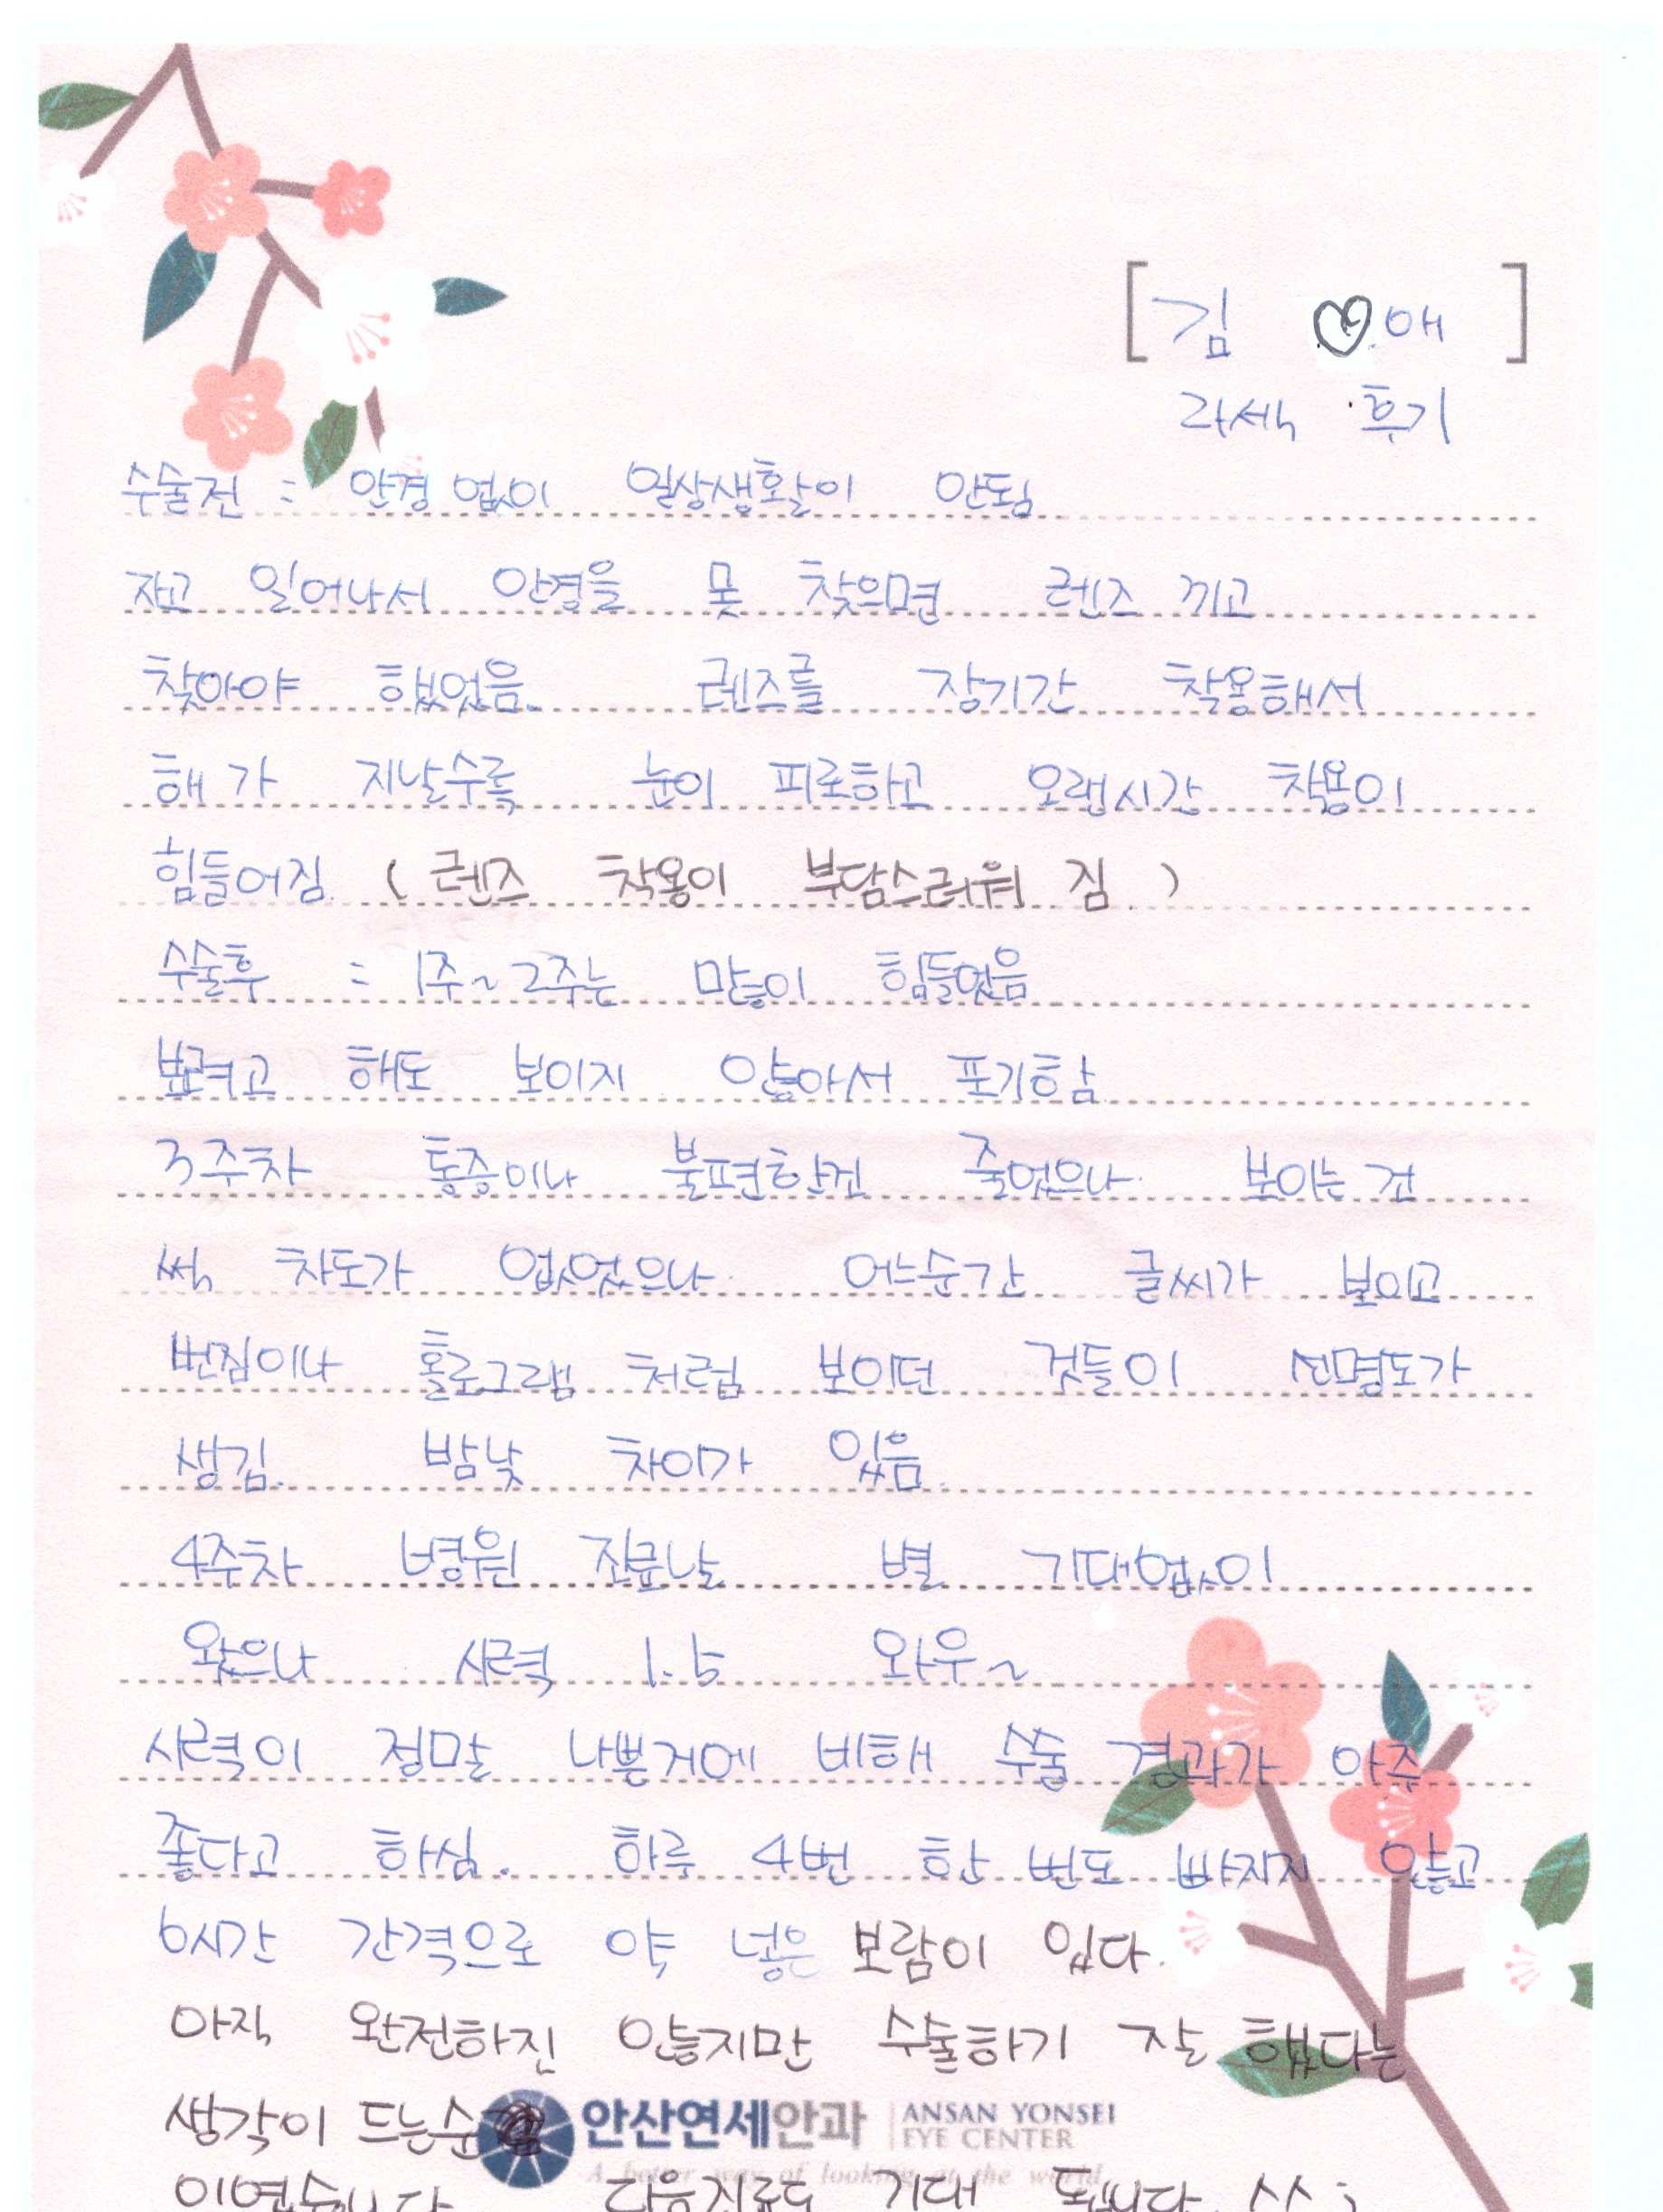 [김 ♡애]
라섹 후기
수술전 : 안경 없이 일상생활이 안됨
자고 일어나서 안경을 못 찾으면 렌즈 끼고
찾아야 했었음. 렌즈를 장기간 착용해서
해가 지날수록 눈이 피로하고 오랜시간 착용이
힘들어짐. (렌즈 착용이 부담스러워 짐.)
수술후 : 1주~2주는 많이 힘들었음
볼려고 해도 보이지 않아서 포기함
3주차 통증이나 불편한건 줄었으나 보이는 건
썩 차도가 없었으나 어느순간 글씨가 보이고
번짐이나 홀로그램 처럼 보이던 것들이 선명도가
생김. 밤낮 차이가 있음.
4주차 병원 진료날 별 기대없이
왔으나 시력 1.5 와우~
시력이 정말 나쁜거에 비해 수술 경과가 아주
좋다고 하심. 하루 4번 한 번도 빠지지 않고
6시간 간격으로 약 넣은 보람이 있다.
아직 완전하진 않지만 수술하기 잘 했다는
생각이 드는순
안산연세안과 ANSAN YONSEI
EYE CENTER
A better way of looking at the world
이였습니다. 다음진료도 기대 됩니다. ^^;